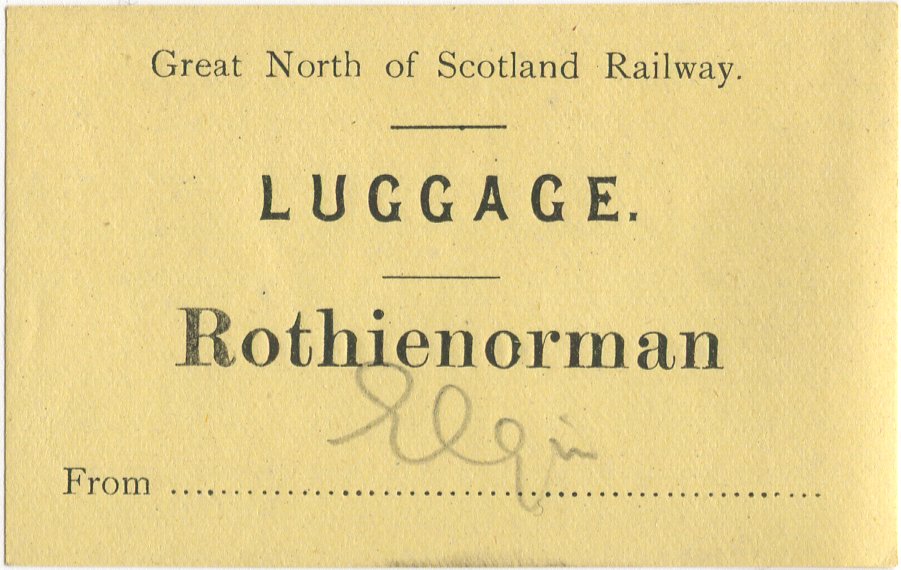 Great North of Scotland Railway.
LUGGAGE.
Rothienorman
Elgin
From ........................................................